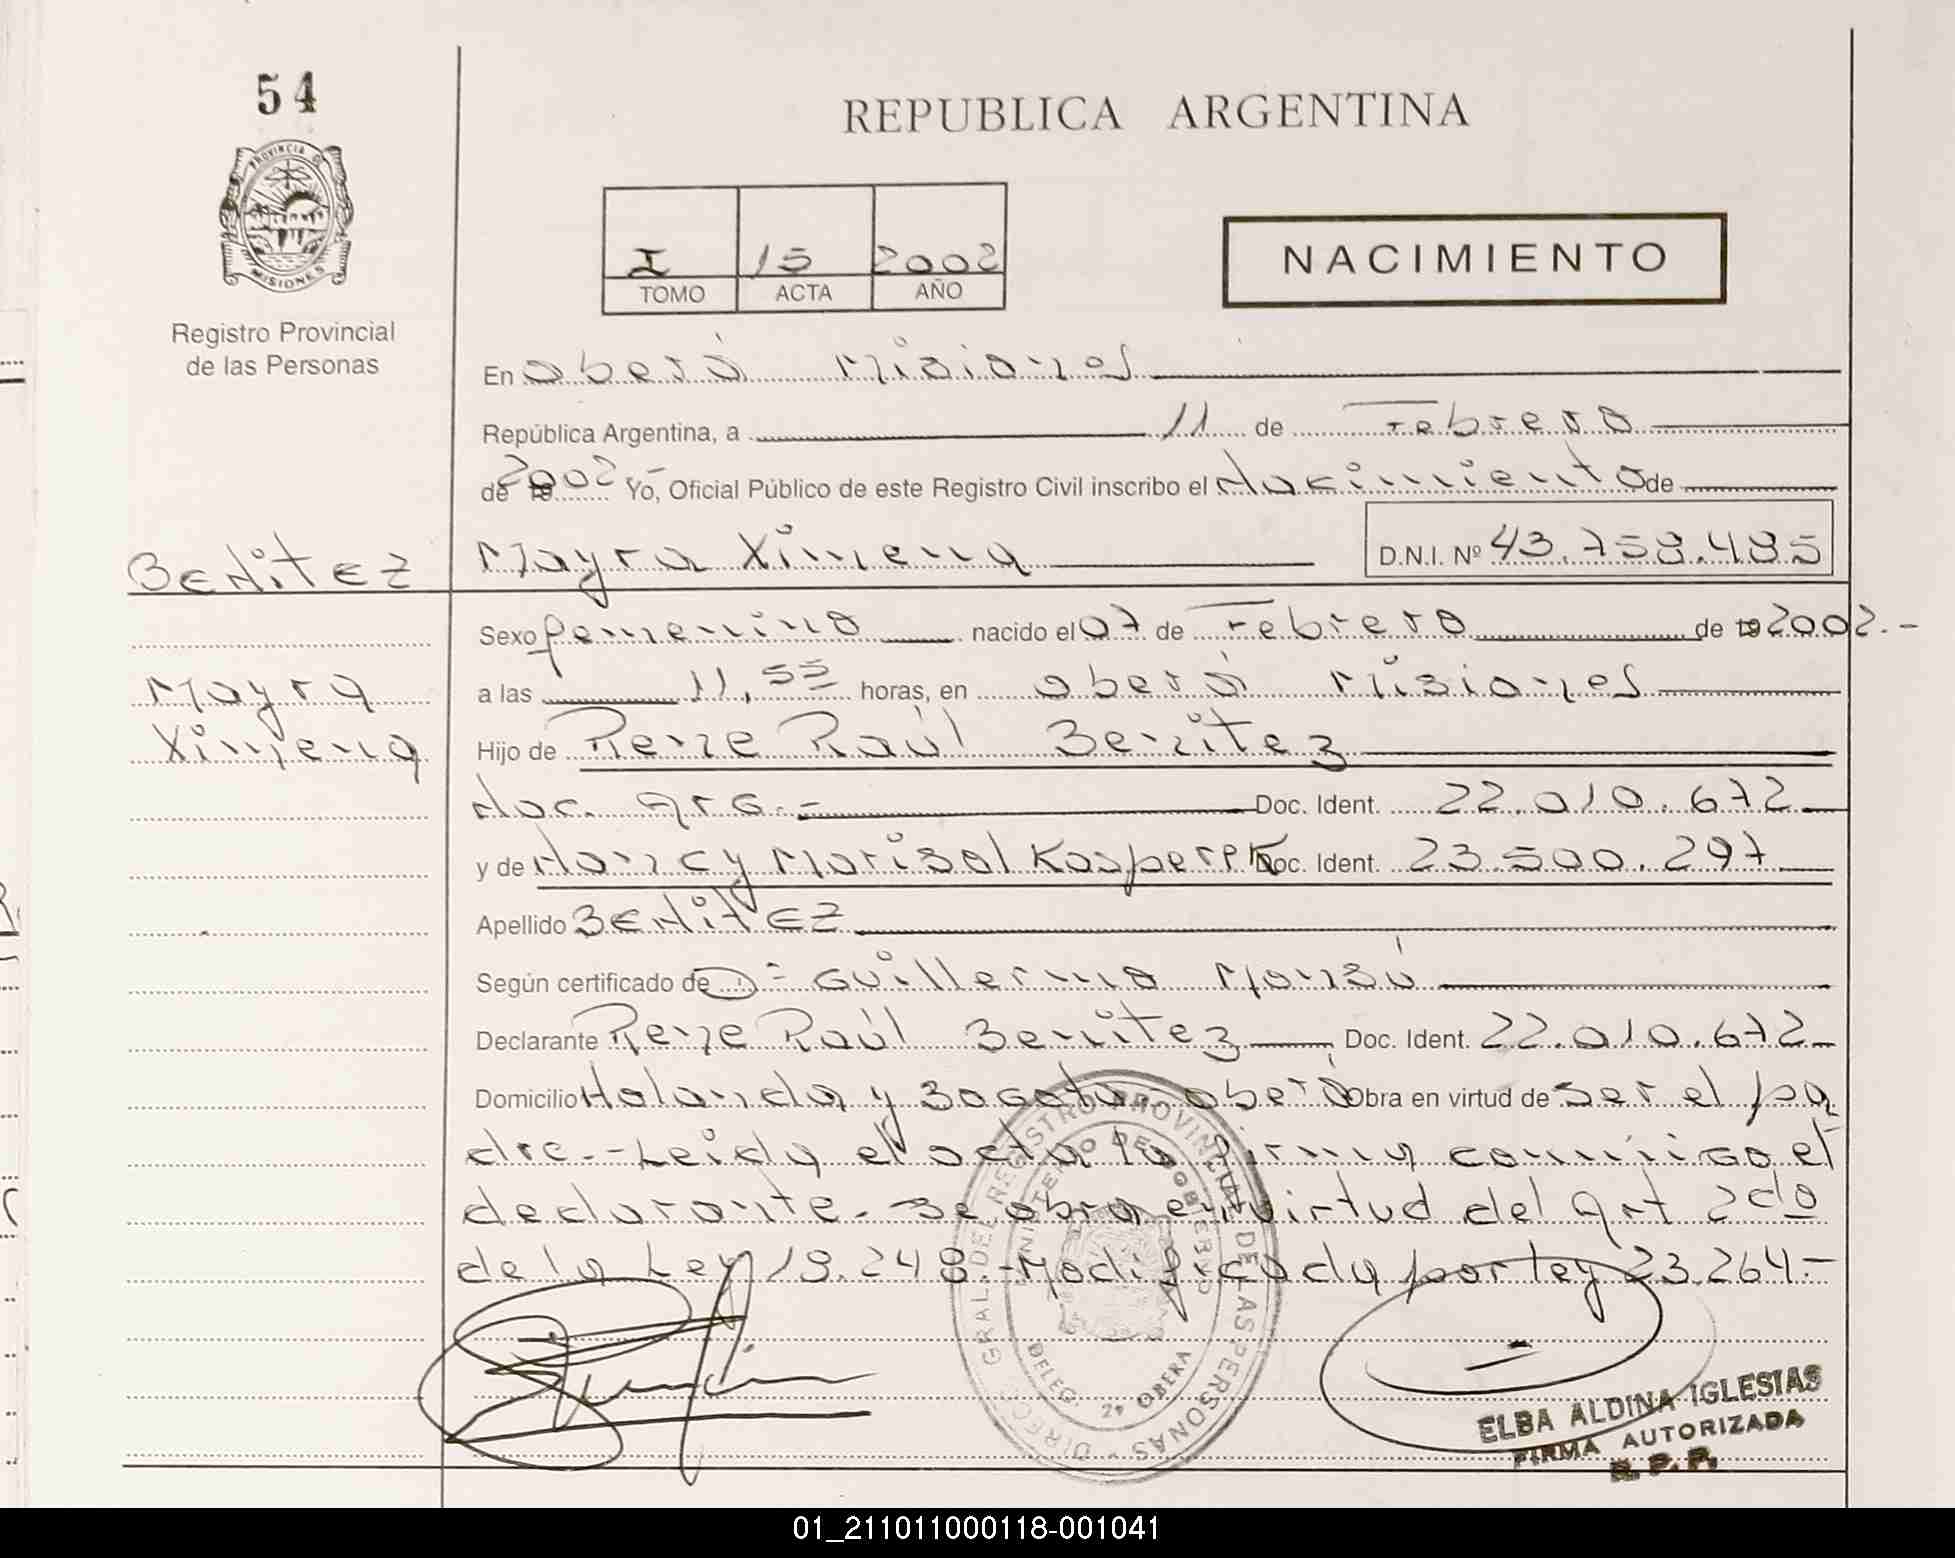 54
REPUBLICA ARGENTINA
PROVINCIA D
MISIONES
I 15 2002
TOMO ACTA AÑO
NACIMIENTO
Registro Provincial
de las Personas
En Oberá Misiones
República Argentina, a 11 de Febrero
de 19 2002 Yo, Oficial Público de este Registro Civil inscribo el Nacimiento de
BENITEZ Mayra Ximena D.N.I. Nº 43.758.485
Sexo femenino nacido el 07 de Febrero de 19 2002.-
Mayra
Ximena
a las 11,55 horas, en Oberá Misiones
Hijo de Rene Raúl Benitez
Nac. Arg.- Doc. Ident. 22.010.672
y de Nancy Marisol Kasperek Doc. Ident. 23.500.297
Apellido BENITEZ
Según certificado de D= Guillermo Monzú
Declarante Rene Raúl Benitez Doc. Ident. 22.010.672
Domicilio Holanda y Bogota Oberá Obra en virtud de ser el pa
dre.- Leida el acta la firma conmigo el
declarante.- Se obra en virtud del Art 2do
de la Ley 18.248.- Modificada por ley 23.264.-
DIRECC. GRAL. DEL REGISTRO PROVINCIAL DE LAS PERSONAS
MINISTERIO DE GOBIERNO
DELEG. 2ª OBERA
ELBA ALDINA IGLESIAS
FIRMA AUTORIZADA
R. P. P.
01_211011000118-001041